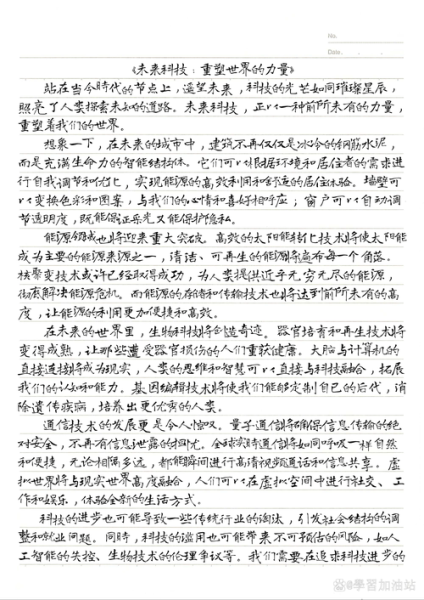 No.
Date.
《未来科技：重塑世界的力量》
站在当今时代的节点上，遥望未来，科技的光芒如同璀璨星辰，
照亮了人类探索未知的道路。未来科技，正以一种前所未有的力量，
重塑着我们的世界。
想象一下，在未来的城市中，建筑不再仅仅是冰冷的钢筋水泥，
而是充满生命力的智能结构体。它们可以根据环境和居住者的需求进
行自我调节和优化，实现能源的高效利用和舒适的居住体验。墙壁可
以变换色彩和图案，与我们的心情和喜好相呼应；窗户可以自动调
节透明度，既能保证采光又能保护隐私。
能源领域也将迎来重大突破。高效的太阳能转化技术将使太阳能
成为主要的能源来源之一，清洁、可再生的能源将遍布每一个角落。
核聚变技术或许已经取得成功，为人类提供近乎无穷无尽的能源，
彻底解决能源危机。而能源的存储和传输技术也将达到前所未有的高
度，让能源的利用更加便捷和高效。
在未来的世界里，生物科技将创造奇迹。器官培育和再生技术将
变得成熟，让那些遭受器官损伤的人们重获健康。大脑与计算机的
直接连接将成为现实，人类的思维和智慧可以直接与科技融合，拓展
我们的认知和能力。基因编辑技术将使我们能够定制自己的后代，消
除遗传疾病，培养出更优秀的人类。
通信技术的发展更是令人惊叹。量子通信将确保信息传输的绝
对安全，不再有信息泄露的担忧。全球实时通信将如同呼吸一样自然
和便捷，无论相隔多远，都能瞬间进行高清视频通话和信息共享。虚
拟世界将与现实世界高度融合，人们可以在虚拟空间中进行社交、工
作和娱乐，体验全新的生活方式。
科技的进步也可能导致一些传统行业的淘汰，引发社会结构的调
整和就业问题。同时，科技的滥用也可能带来不可预估的风险，如人
工智能的失控、生物技术的伦理争议等。我们需要在追求科技进步的
@學習加油站